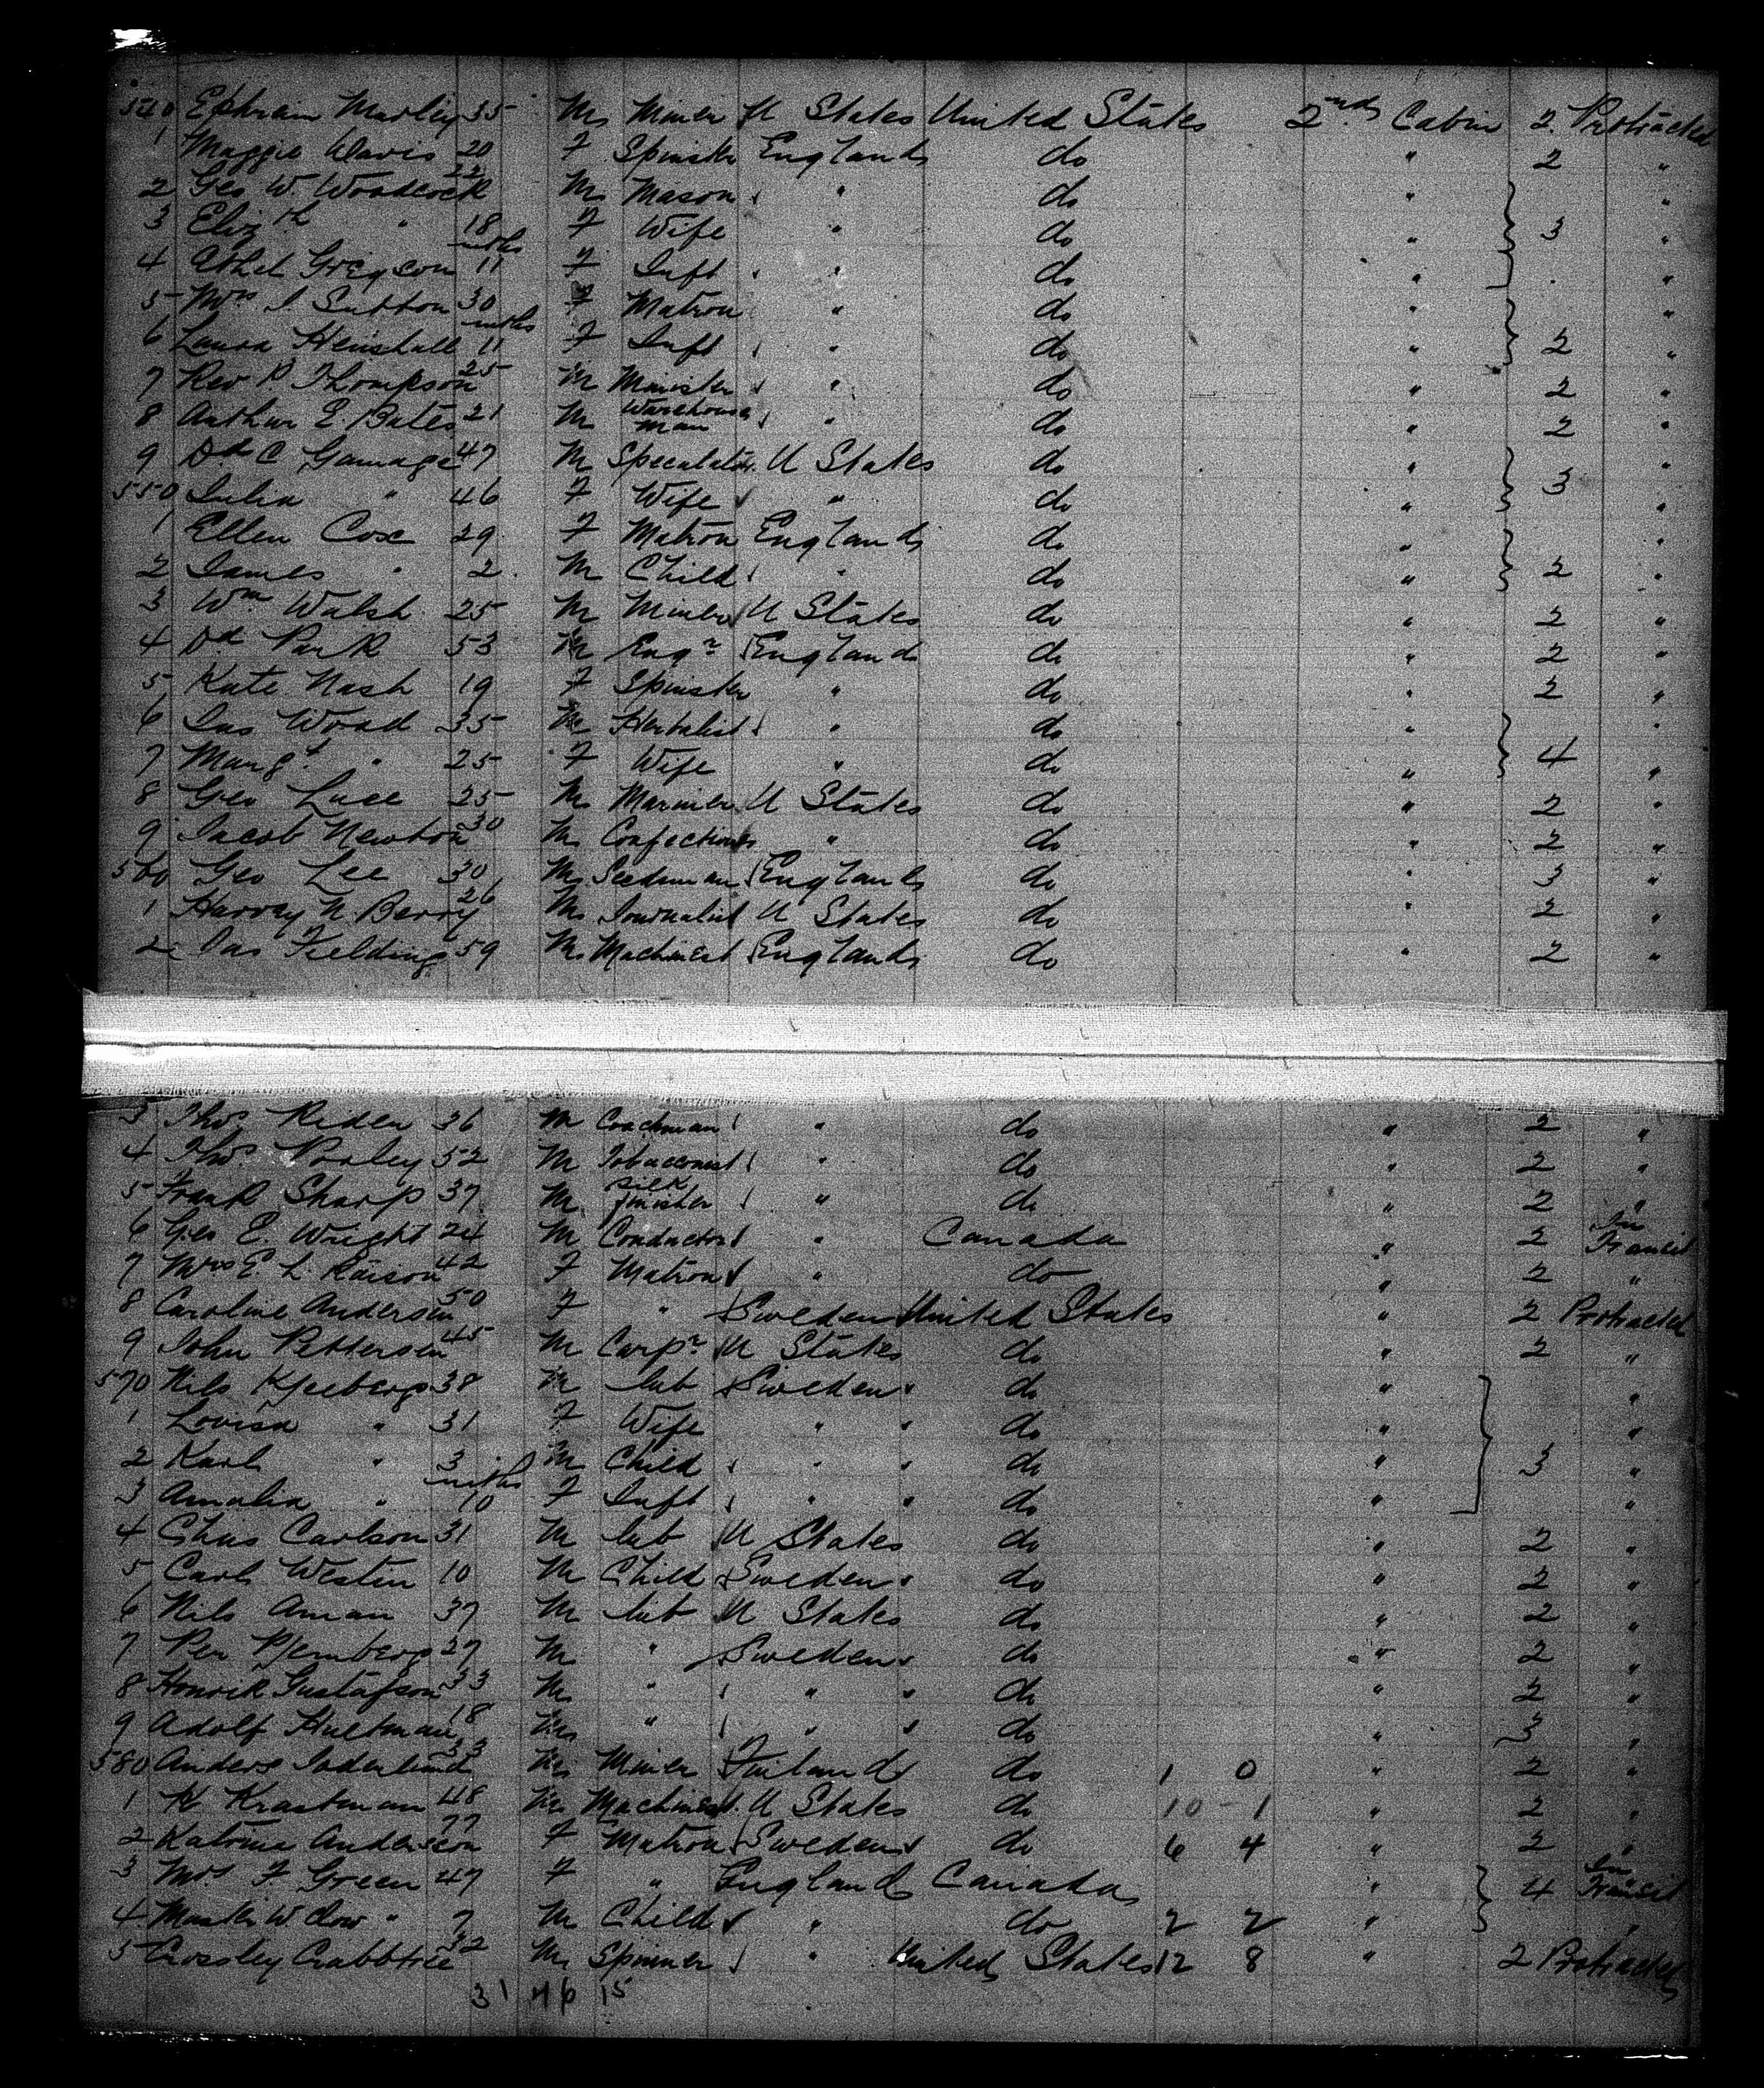 540 Ephraim Morley 35 M Miner U States United States 2nd Cabin 2 Protracted
1 Maggie Davis 20 F Spinster England do " 2 "
2 Geo W. Woodcock 22 M Mason " do " "
3 Elizth " 18 F Wife " do " 3 "
4 Ethel Gregson mths 11 F Inft " do " "
5 Mrs J Sutton 30 F Matron " do " "
6 Laura Henshall mths 11 F Inft " do " 2 "
7 Rev P Thompson 25 M Minister " do " 2 "
8 Arthur E. Bates 21 M Warehouse man " do " 2 "
9 Dd C Gamage 47 M Speculator U States do " "
550 Julia " 46 F Wife " do " 3 "
1 Ellen Cox 29 F Matron England do " "
2 James " 2 M Child " do " 2 "
3 Wm Walsh 25 M Miner U States do " 2 "
4 Dd Park 53 M Engr England do " 2 "
5 Kate Nash 19 F Spinster " do " 2 "
6 Jas Wood 35 M Herbalist " do " "
7 Margt " 25 F Wife " do " 4 "
8 Geo Luce 25 M Mariner U States do " 2 "
9 Jacob Newton 30 M Confectioner " do " 2 "
560 Geo Lee 30 M Seedsman England do " 3 "
1 Harvey N Berry 26 M Journalist U States do " 2 "
2 Jas Fielding 59 M Machinest England do " 2 "
3 Thos Riden 36 M Coachman " do " 2 "
4 Thos Pooley 52 M Tobacconist " do " 2 "
5 Frank Sharp 37 M Silk finisher " do " 2 "
6 Geo E. Wright 24 M Conductor " Canada " 2 In Transit
7 Mrs E. L. Raison 42 F Matron " do " 2 "
8 Caroline Andersen 50 F " Sweden United States " 2 Protracted
9 John Pettersen 45 M Carpr U States do " 2 "
570 Nils Kjeeberg 38 M lab Sweden do " "
1 Lovisa " 31 F Wife " do " "
2 Karl " 3 M Child " do " 3 "
3 Amalia " mths 10 F Inft " do " "
4 Chas Carlson 31 M lab U States do " 2 "
5 Carl Westin 10 M Child Sweden do " 2 "
6 Nils Aman 37 M lab U States do " 2 "
7 Per 27 M " Sweden do " 2 "
8 Henrik Gustafson 33 M " " do " 2 "
9 Adolf Hultman 18 M " " do " 3 "
580 Anders Soderlund 33 M Miner Finland do 1 0 " 2 "
1 K Krastman 48 M Machinest U States do 10 - 1 " 2 "
2 Katrina Anderson 77 F Matron Sweden do 6 4 " 2 "
3 Mrs F Green 47 F " England Canada " 4 In Transit
4 Master W Clow " 7 M Child " do 2 2 " "
5 Crossley Crabbtree 32 M Spinner " United States 12 8 " 2 Protracted
31 46 15